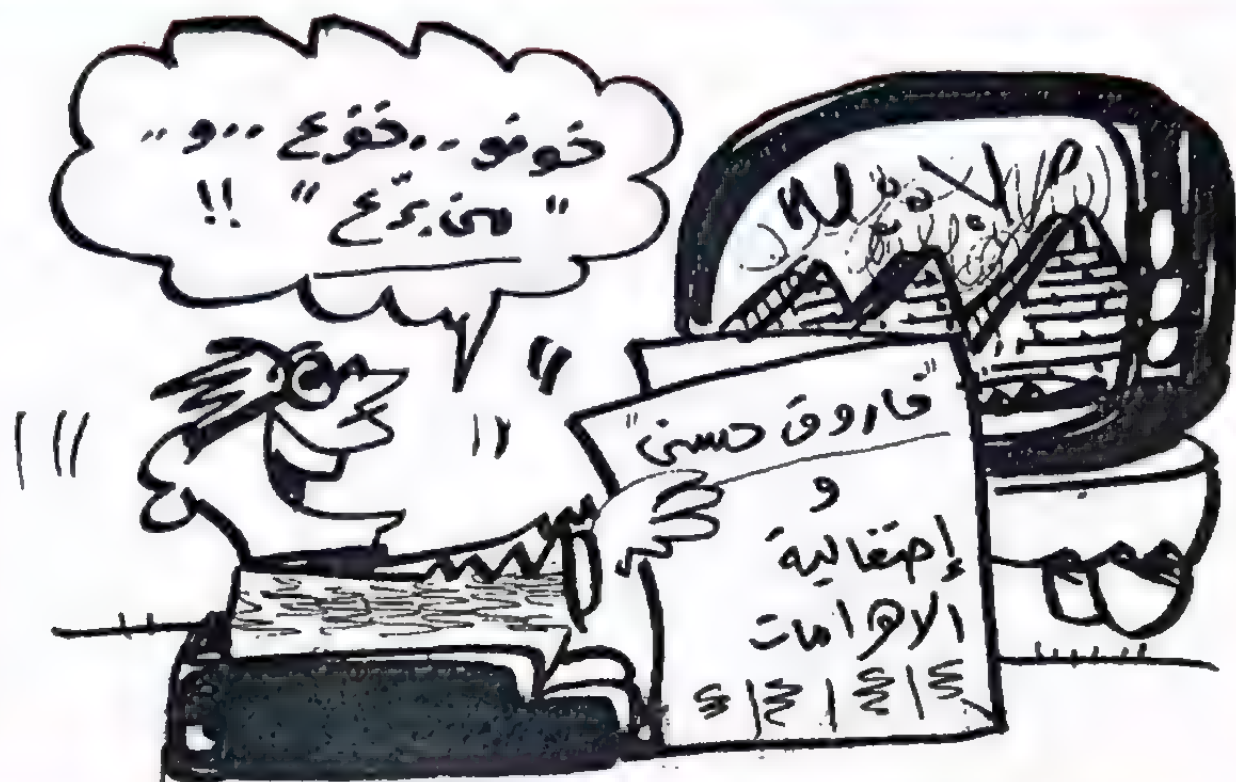 خوفو .. خفرع .. و ..
" من برّع " !!
"فاروق حسنى"
و
إحتفالية
الاهرامات